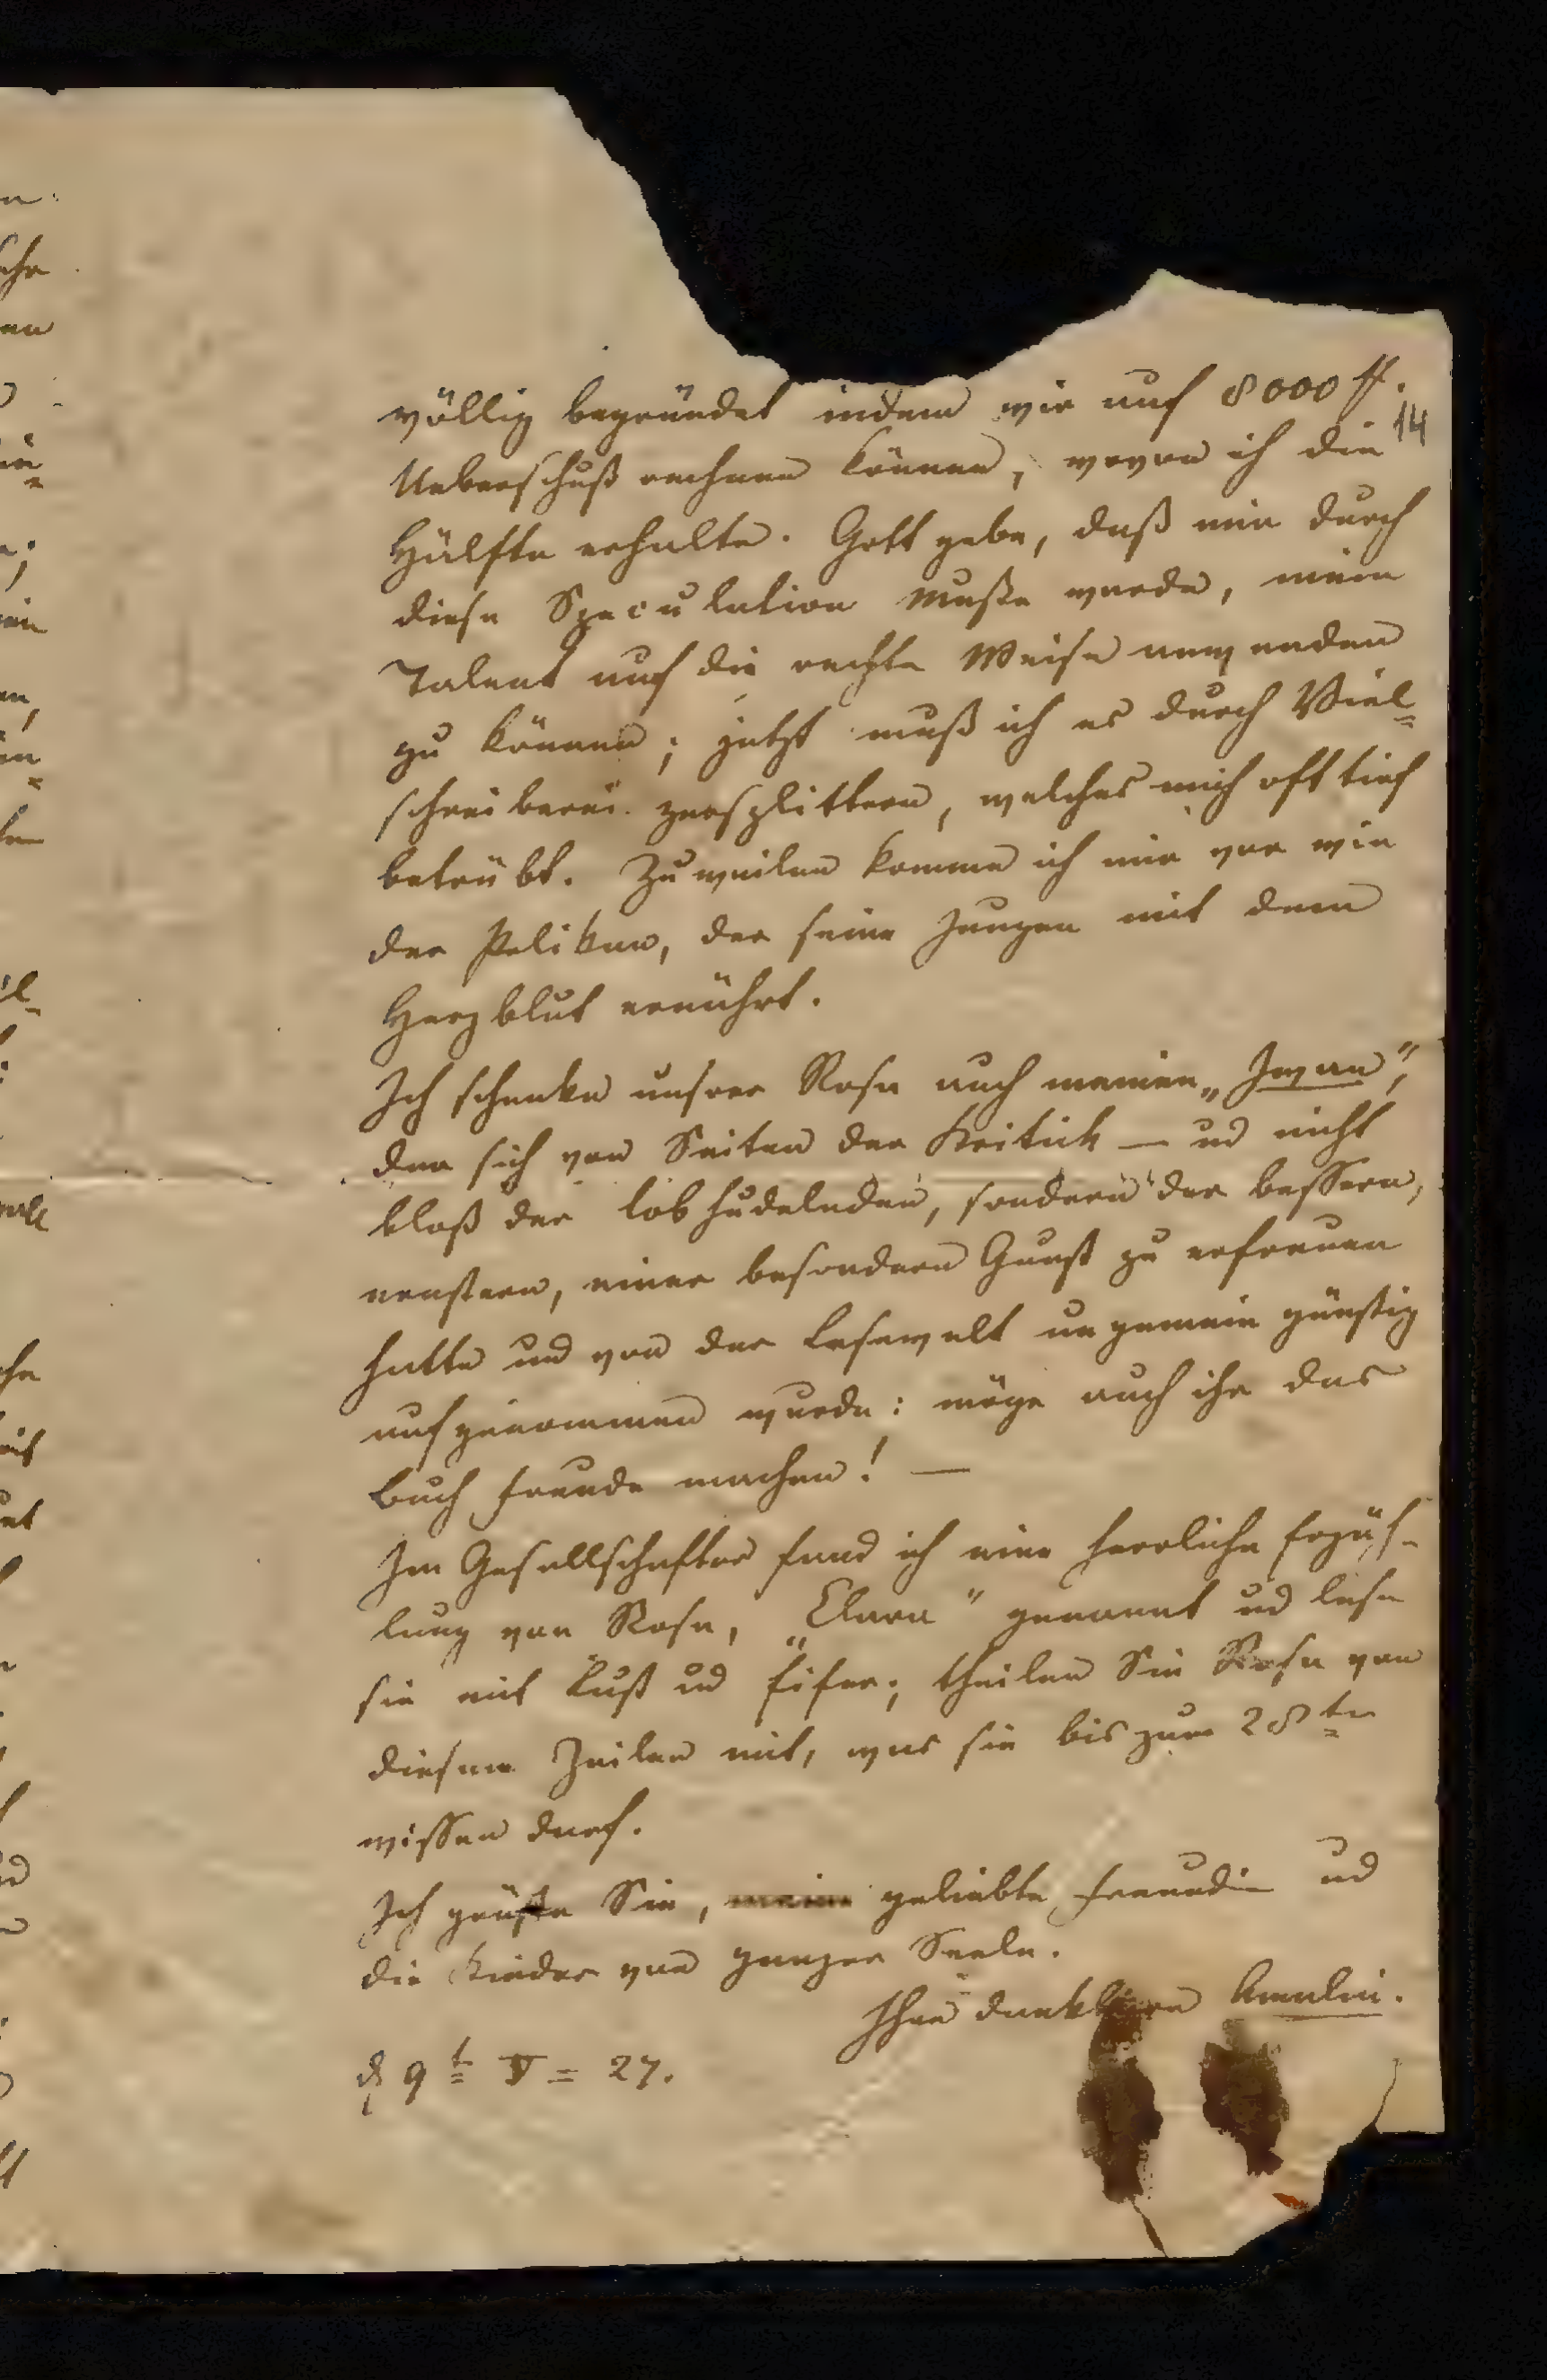 völlig begründet indem wir auf 8000 fl.
14
Ueberschuß rechnen können, wovon ich die
Hälfte erhalte. Gott gebe, daß mir durch
diese Speculation Muße werde, mein
Talent auf die rechte Weise anwenden
zu können; jetzt muß ich es durch Viel=
schreiberei zersplittern, welches mich oft tief
betrübt. Zuweilen komme ich mir vor wie
der Pelikan, der seine Jungen mit dem
Herzblut ernährt.
Ich schenke unsrer Rosa auch meinen „Iwan",
der sich von Seiten der Kritick — ud nicht
bloß der lobhudelnden, sondern der bessern,
ernstern, einer besondern Gunst zu erfreuen
hatte und von der Lesewelt ungemein günstig
aufgenommen wurde: möge auch ihr das
Buch Freude machen! —
Im Gesellschafter fand ich eine herrliche Erzäh-
lung von Rosa, „Clara" genannt ud lese
sie mit Lust ud Eifer; theilen Sie Rosa von
diesen Zeilen mit, was sie bis zum 28ten
wissen darf.
Ich grüße Sie, meine geliebte Freundin ud
die Kinder von ganzer Seele.
Ihre dankbare Amalia.
d 9t V = 27.